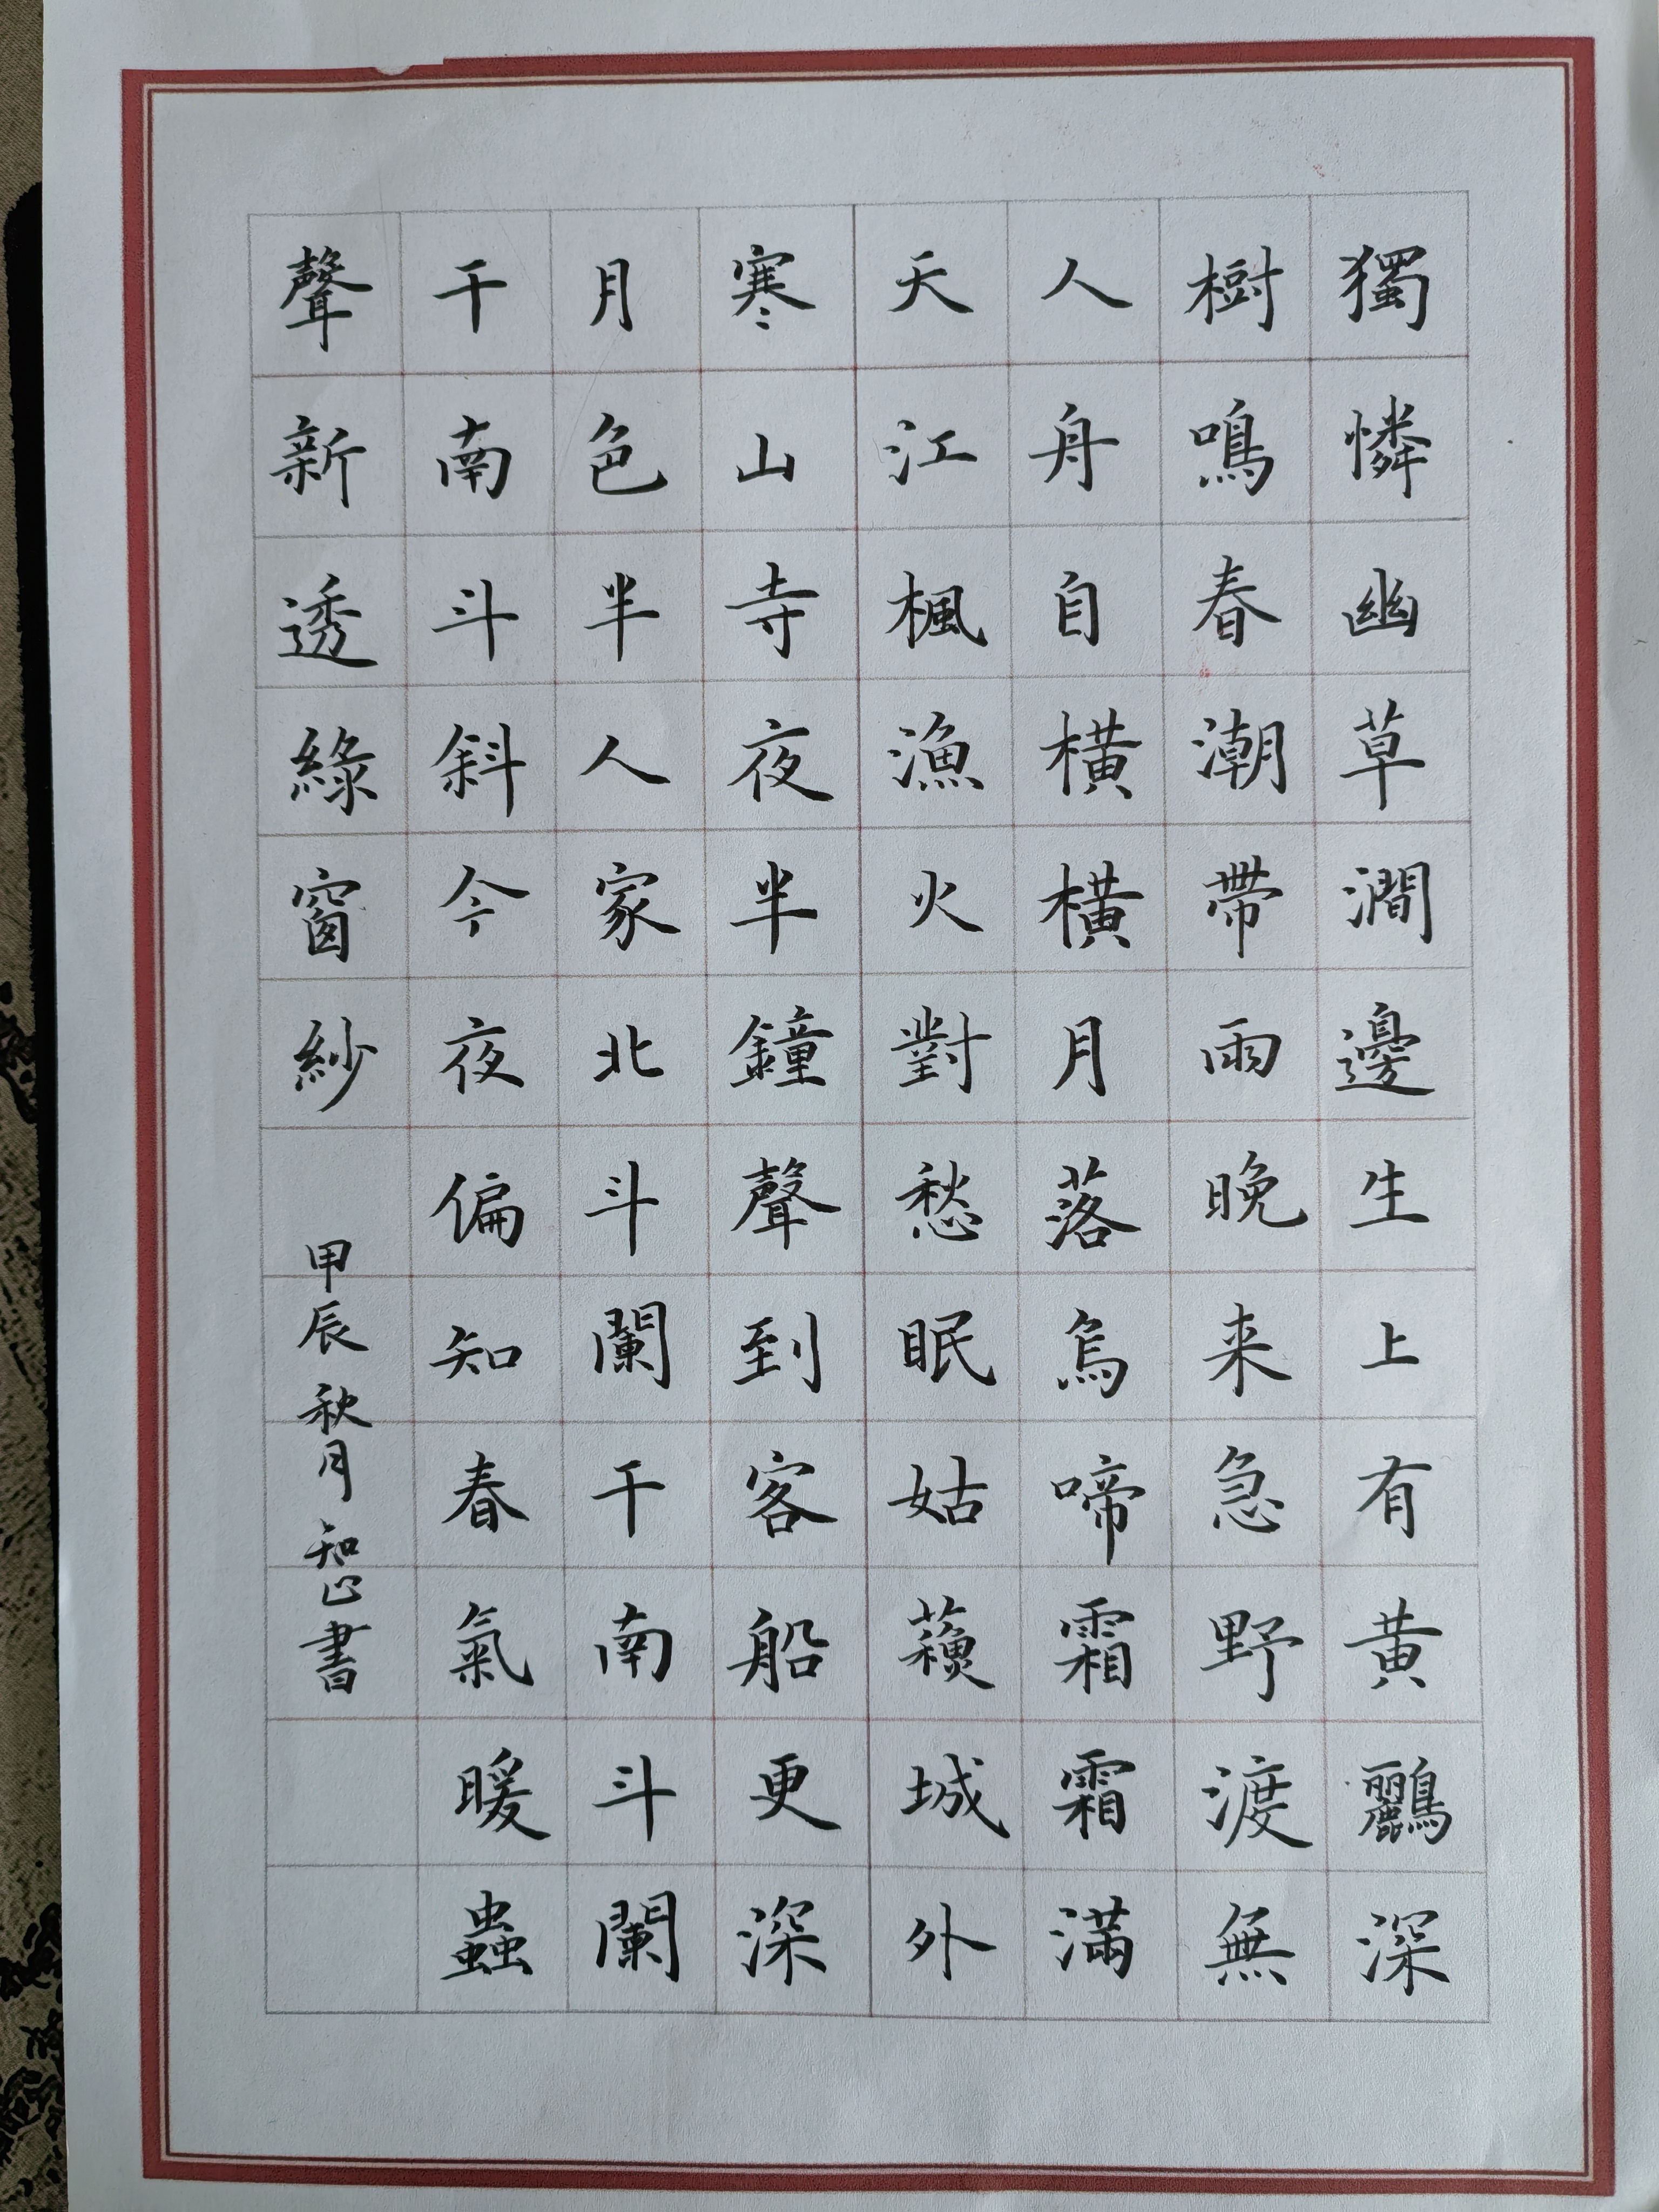 獨憐幽草澗邊生上有黃鸝深
樹鳴春潮帶雨晚来急野渡無
人舟自橫橫月落烏啼霜霜滿
天江楓漁火對愁眠姑蘓城外
寒山寺夜半鐘聲到客船更深
月色半人家北斗闌干南斗闌
干南斗斜今夜偏知春氣暖蟲
聲新透綠窗紗
甲辰秋月知心書